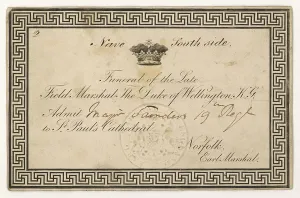 2
Nave South side.
Funeral of the Late
Field Marshal The Duke of Wellington, K.G.
Admit Major 19th Regt
to St. Paul's Cathedral.
Norfolk,
Earl Marshal.